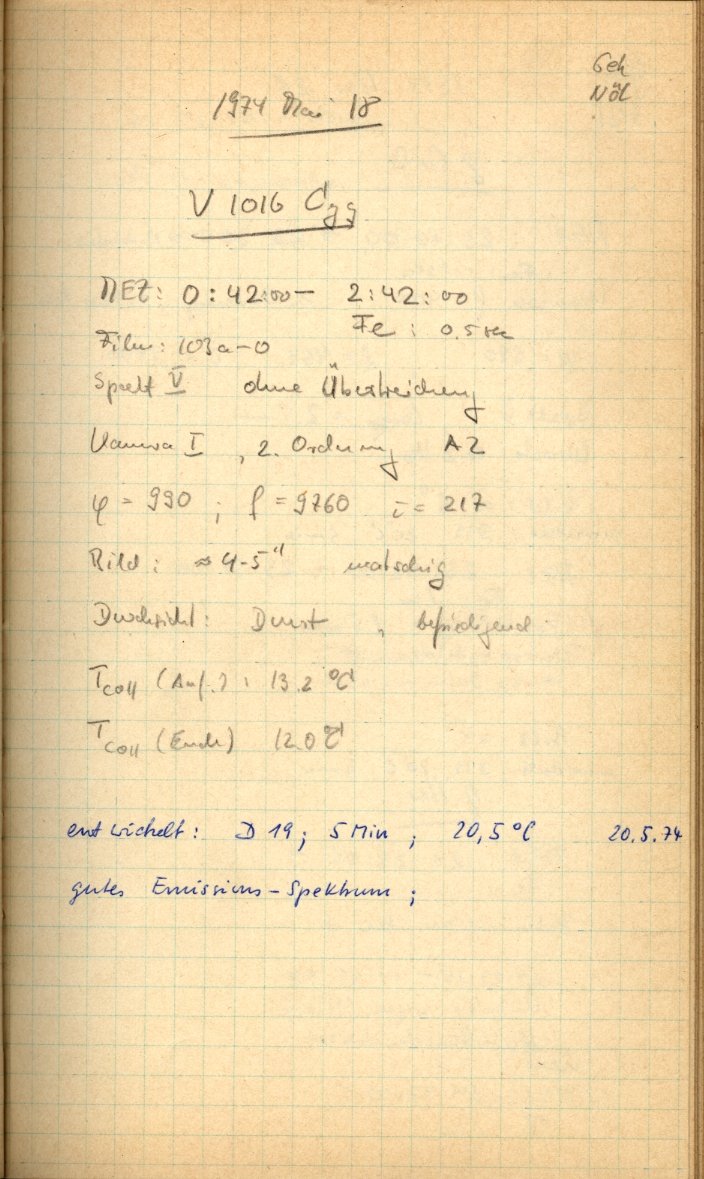 Geh
Nöl
1974 Mai 18
V 1016 Cyg
MEZ: 0:42:00 – 2:42:00
Fe: 0.5 sec
Film: 103a-O
Spalt V ohne Überstreichung
Kamera I, 2. Ordnung A2
φ = 990; f = 9760 i = 217
Bild: ≈ 4-5" matschig
Durchsicht: Dunst, befriedigend
T_Coll (Anf.): 13.2 °C
T_Coll (Ende) 12.0 °C
entwickelt: D 19; 5 Min; 20,5 °C 20.5.74
gutes Emissions-Spektrum;